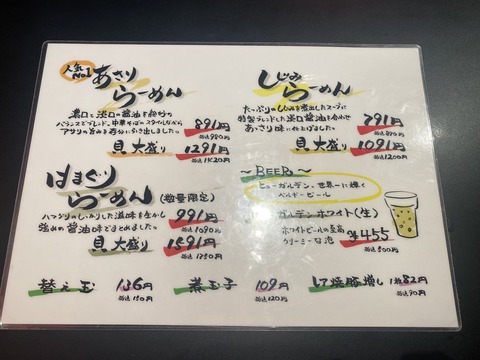 人気No1
あさり
らーめん
濃口と淡口の醤油を絶妙の
バランスでブレンド。中華そばのスタイルながら
アサリの旨みを存分に引き出しました。
891円
税込980円
貝大盛り 1291円
税込1420円
しじみ
らーめん
たっぷりのしじみを煮出したスープに
特製ブレンドした淡口醤油を合わせ
あっさり味に仕上げました。
791円
税込870円
貝大盛り 1091円
税込1200円
はまぐり
らーめん
(数量限定)
ハマグリのしっかりした滋味を生かし
強めの醤油味でまとめました。
991円
税込1090円
貝大盛り 1591円
税込1750円
~BEER~
ヒューガルデン、世界一に輝く
ベルギービール
ガルデンホワイト(生)
ホワイトビールの至高
クリーミーな泡
¥455
税込500円
替え玉 136円
税込150円
煮玉子 109円
税込120円
レア焼豚増し 1枚82円
税込90円